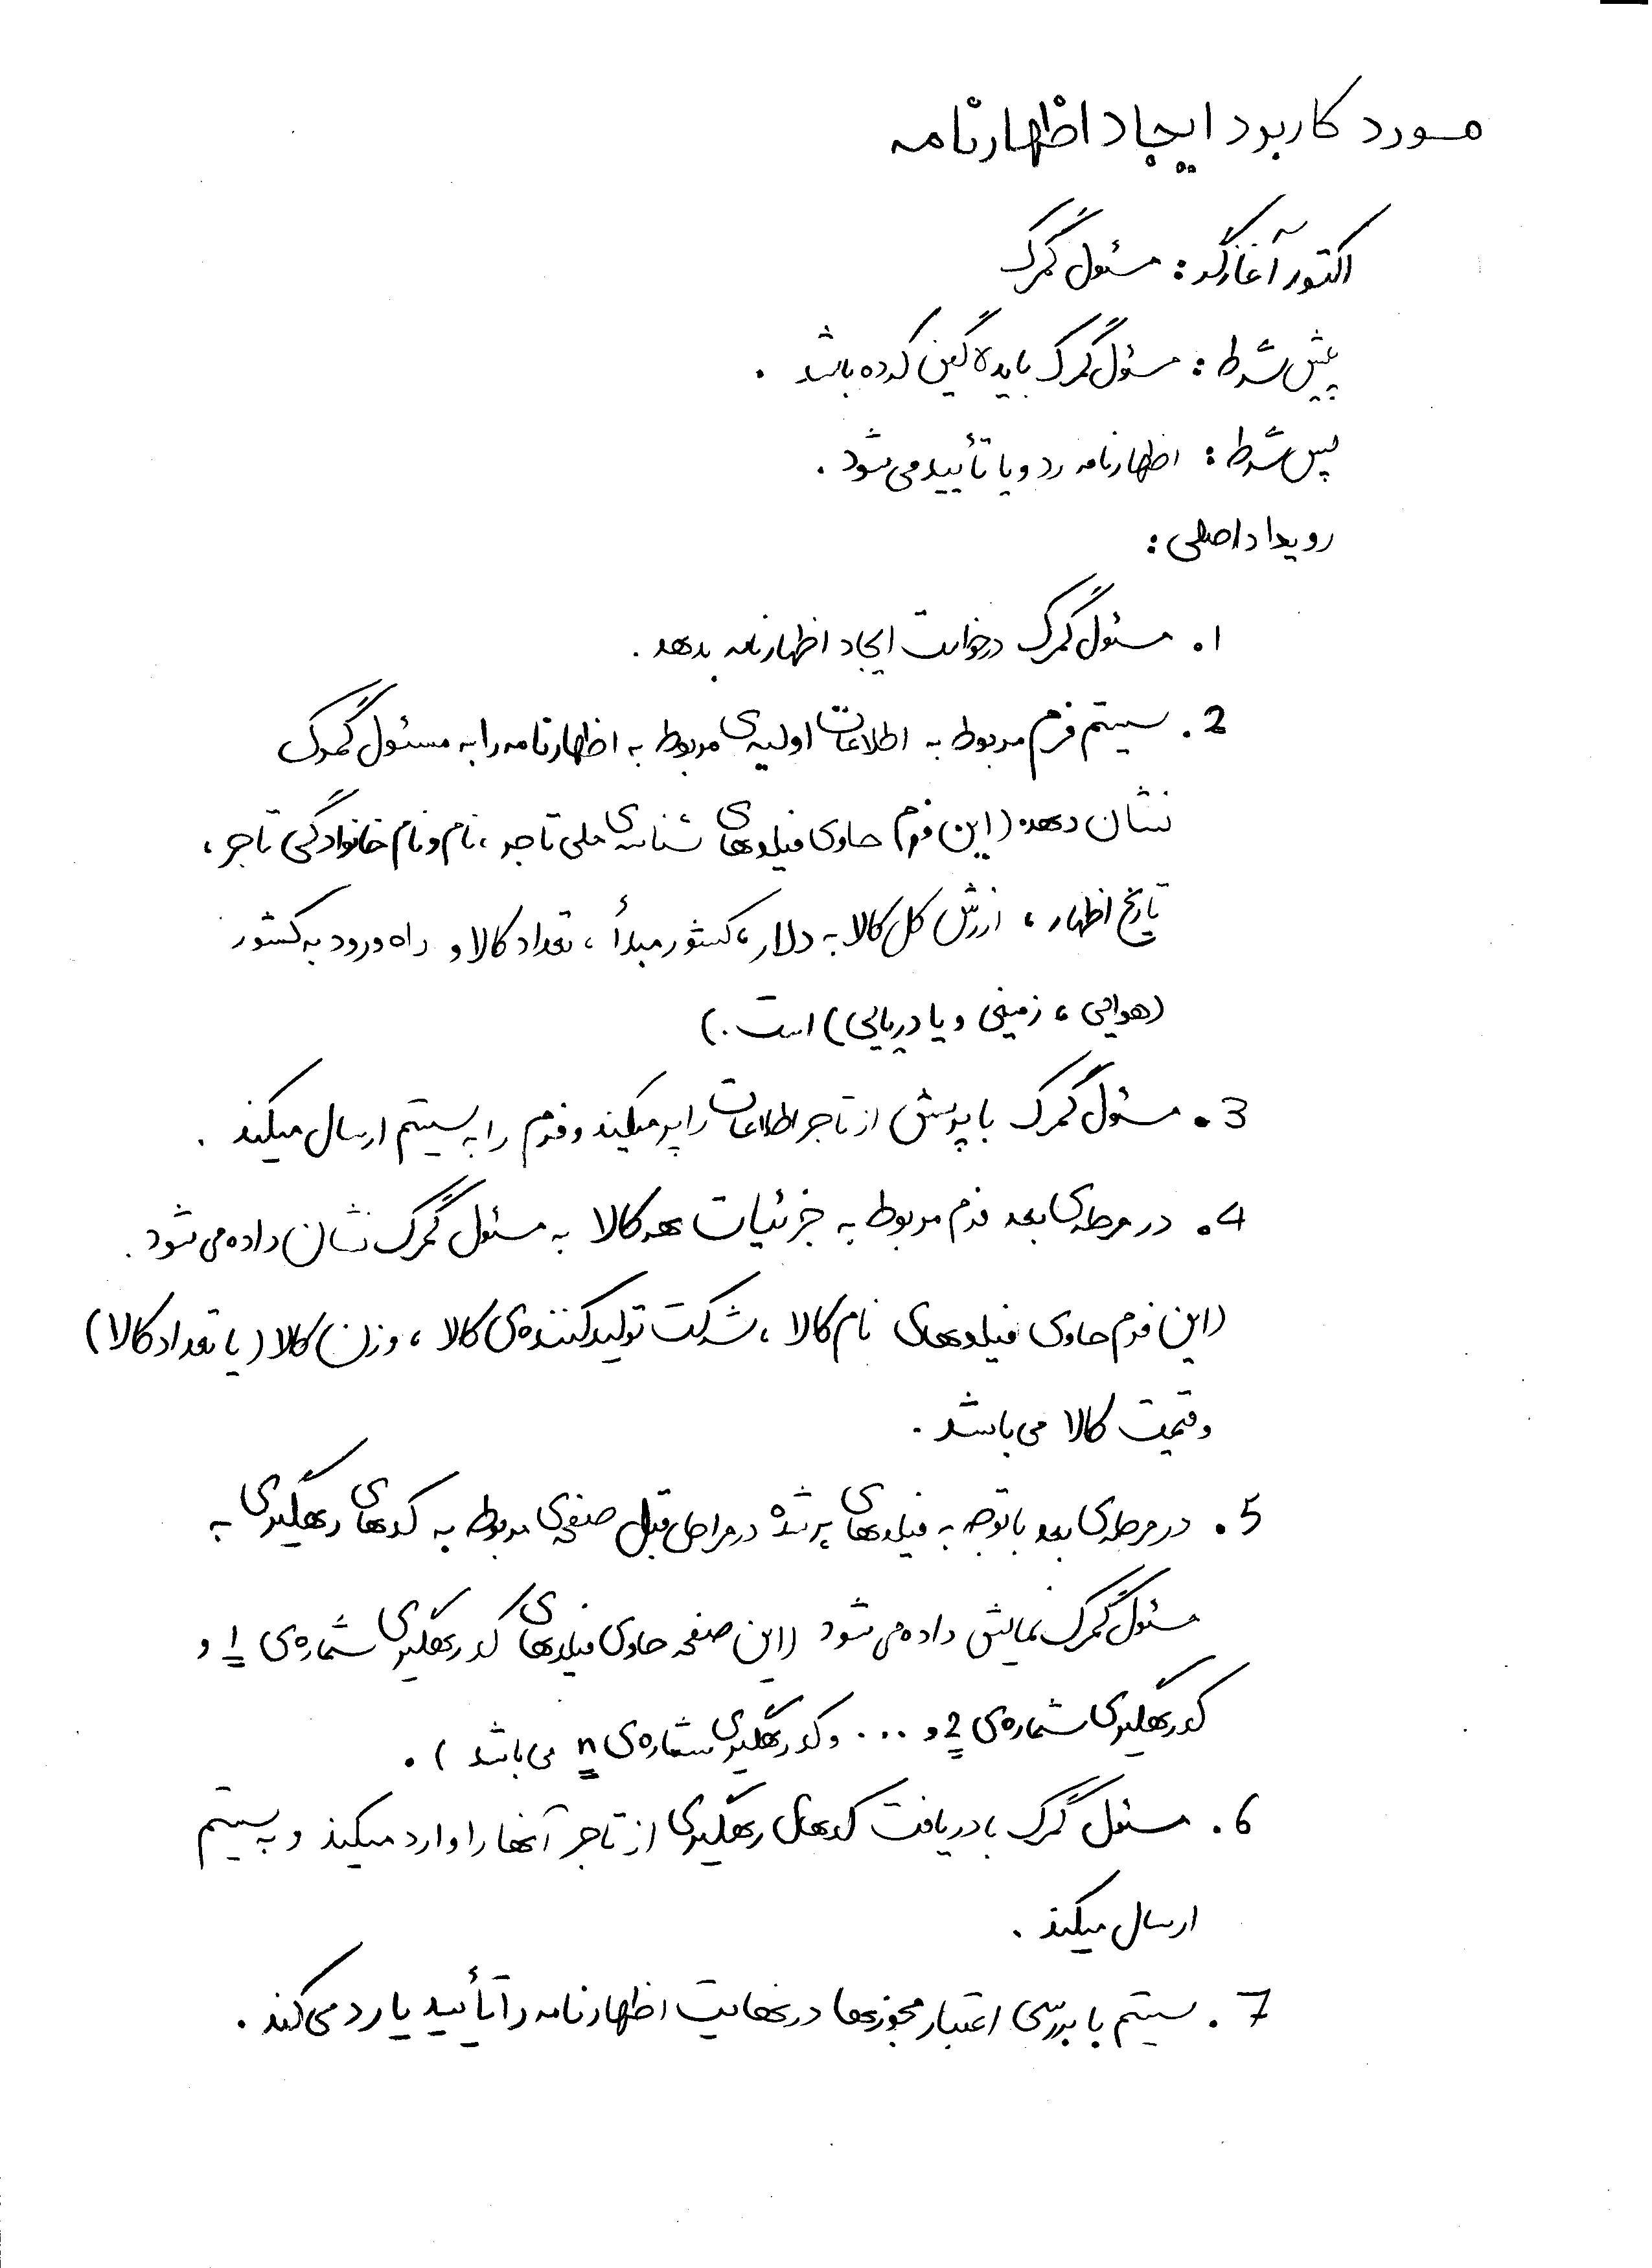 مورد کاربرد ایجاد اظهارنامه
اکتور آغازگر : مسئول گمرک
پیش شرط : مسئول گمرک باید لاگین کرده باشد .
پس شرط : اظهارنامه رد و یا تأیید می شود .
رویداد اصلی :
1. مسئول گمرک درخواست ایجاد اظهارنامه بدهد .
2. سیستم فرم مربوط به اطلاعات اولیه‌ی مربوط به اظهارنامه را به مسئول گمرک
نشان دهد (این فرم حاوی فیلدهای شناسه‌ی ملی تاجر ، نام و نام خانوادگی تاجر ،
تاریخ اظهار ، ارزش کل کالا به دلار ، کشور مبدأ ، تعداد کالا و راه ورود به کشور
(هوایی ، زمینی و یا دریایی) است .)
3. مسئول گمرک با پرسش از تاجر اطلاعات را پر میکند و فرم را به سیستم ارسال میکند .
4. در مرحله‌ی بعد فرم مربوط به جزئیات هر کالا به مسئول گمرک نشان داده می شود .
(این فرم حاوی فیلدهای نام کالا ، شرکت تولید کننده‌ی کالا ، وزن کالا (یا تعداد کالا)
و قیمت کالا می باشد .
5. در مرحله‌ی بعد با توجه به فیلدهای پر شده در مراحل قبل صفحه‌ی مربوط به کدهای رهگیری به
مسئول گمرک نمایش داده می شود (این صفحه حاوی فیلدهای کد رهگیری شماره‌ی 1 و
کد رهگیری شماره‌ی 2 و ... و کد رهگیری شماره‌ی n می باشد ) .
6. مسئول گمرک با دریافت کدهای رهگیری از تاجر آنها را وارد میکند و به سیستم
ارسال میکند .
7. سیستم با بررسی اعتبار مجوزها در نهایت اظهارنامه را تأیید یا رد می کند .